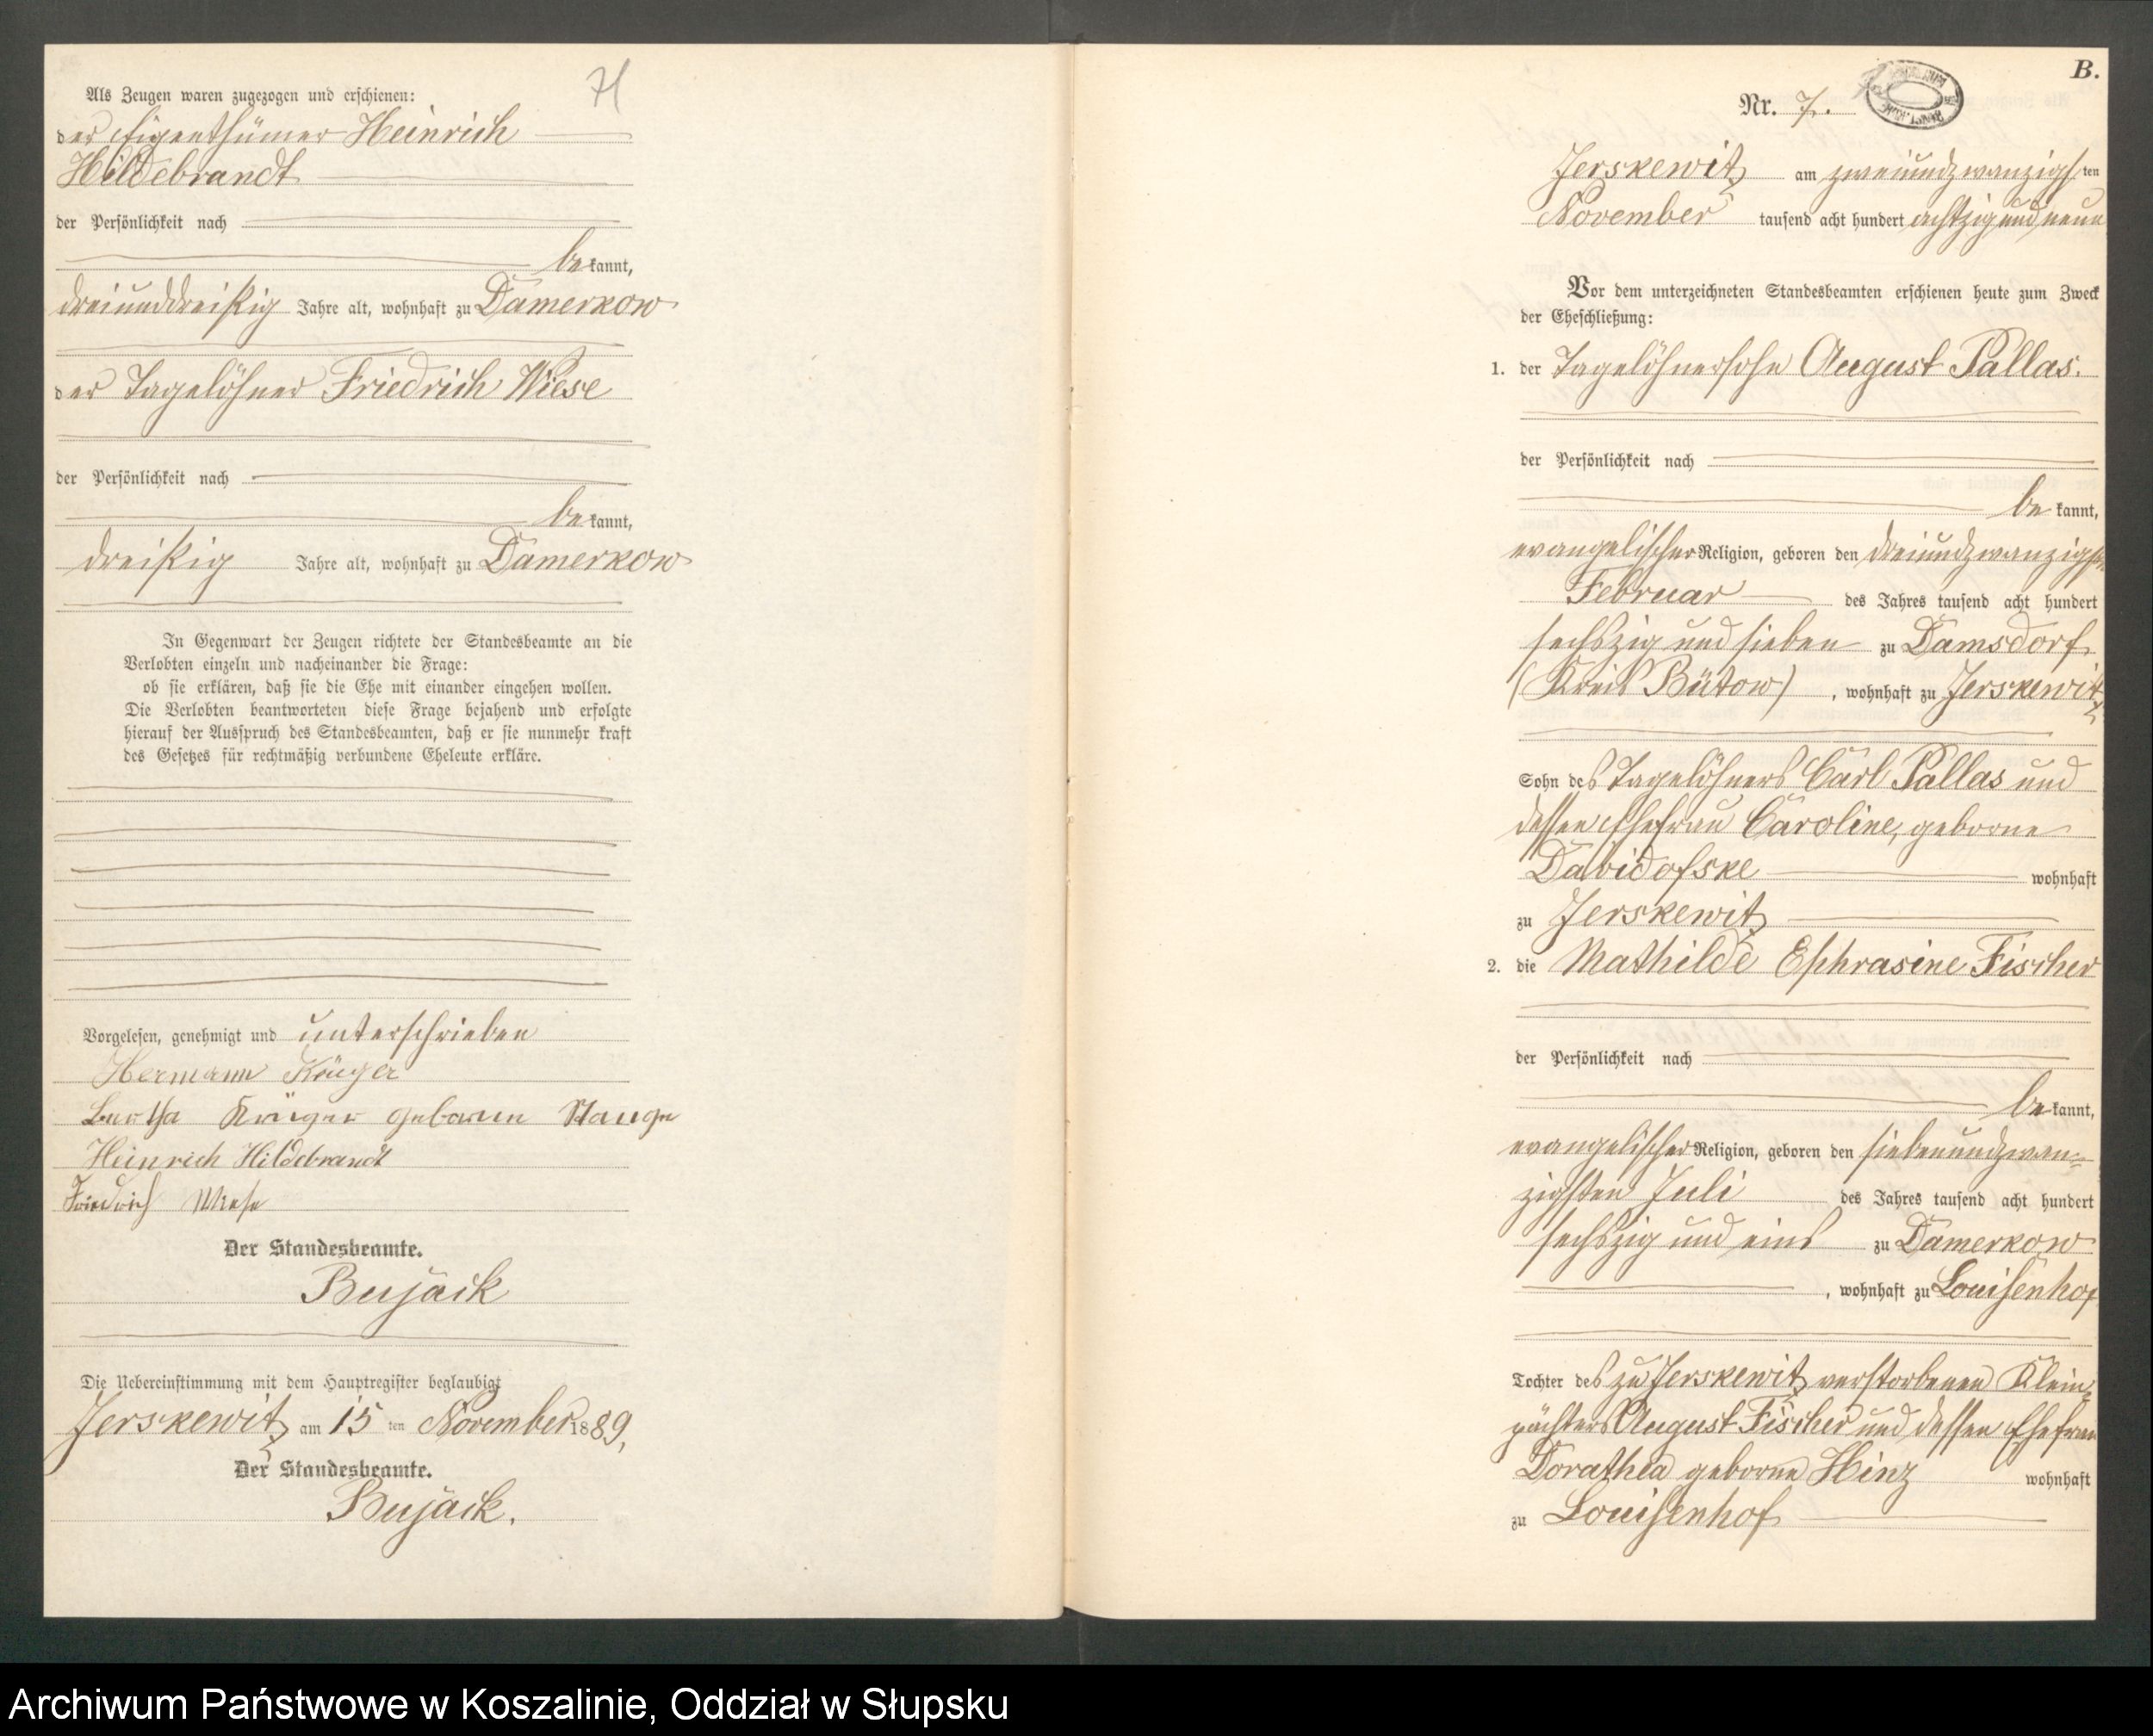 Als Zeugen waren zugezogen und erschienen:
der Eigenthümer Heinrich
Hildebrandt
der Persönlichkeit nach
bekannt,
dreiunddreißig Jahre alt, wohnhaft zu Damerkow
der Tagelöhner Friedrich Wiese
der Persönlichkeit nach
bekannt,
dreißig Jahre alt, wohnhaft zu Damerkow
In Gegenwart der Zeugen richtete der Standesbeamte an die
Verlobten einzeln und nacheinander die Frage:
ob sie erklären, daß sie die Ehe mit einander eingehen wollen.
Die Verlobten beantworteten diese Frage bejahend und erfolgte
hierauf der Ausspruch des Standesbeamten, daß er sie nunmehr kraft
des Gesetzes für rechtmäßig verbundene Eheleute erkläre.
Vorgelesen, genehmigt und unterschrieben
Hermann Krüger
Bertha Krüger geboren Stange
Heinrich Hildebrandt
Friedrich Wiese
Der Standesbeamte.
Bujack
Die Uebereinstimmung mit dem Hauptregister beglaubigt
Jerskewitz am 15 ten November 1889,
Der Standesbeamte.
Bujack.
B.
Nr. 7.
Jerskewitz am zweiundzwanzigsten
November tausend acht hundert achtzig und neun
Vor dem unterzeichneten Standesbeamten erschienen heute zum Zweck
der Eheschließung:
1. der Tagelöhnersohn August Pallas.
der Persönlichkeit nach
bekannt,
evangelischer Religion, geboren den dreiundzwanzigsten
Februar des Jahres tausend acht hundert
sechszig und sieben zu Damsdorf
(Kreis Bütow), wohnhaft zu Jerskewitz
Sohn des Tagelöhners Carl Pallas und
dessen Ehefrau Caroline, geborne
Davidofske wohnhaft
zu Jerskewitz
2. die Mathilde Ephrasine Fischer
der Persönlichkeit nach
bekannt,
evangelischer Religion, geboren den siebenundzwan=
zigsten Juli des Jahres tausend acht hundert
sechszig und eins zu Damerkow
, wohnhaft zu Louisenhof
Tochter des zu Jerskewitz verstorbenen Klein=
pächters August Fischer und dessen Ehefrau
Dorathea geborne Hinz wohnhaft
zu Louisenhof
Archiwum Państwowe w Koszalinie, Oddział w Słupsku